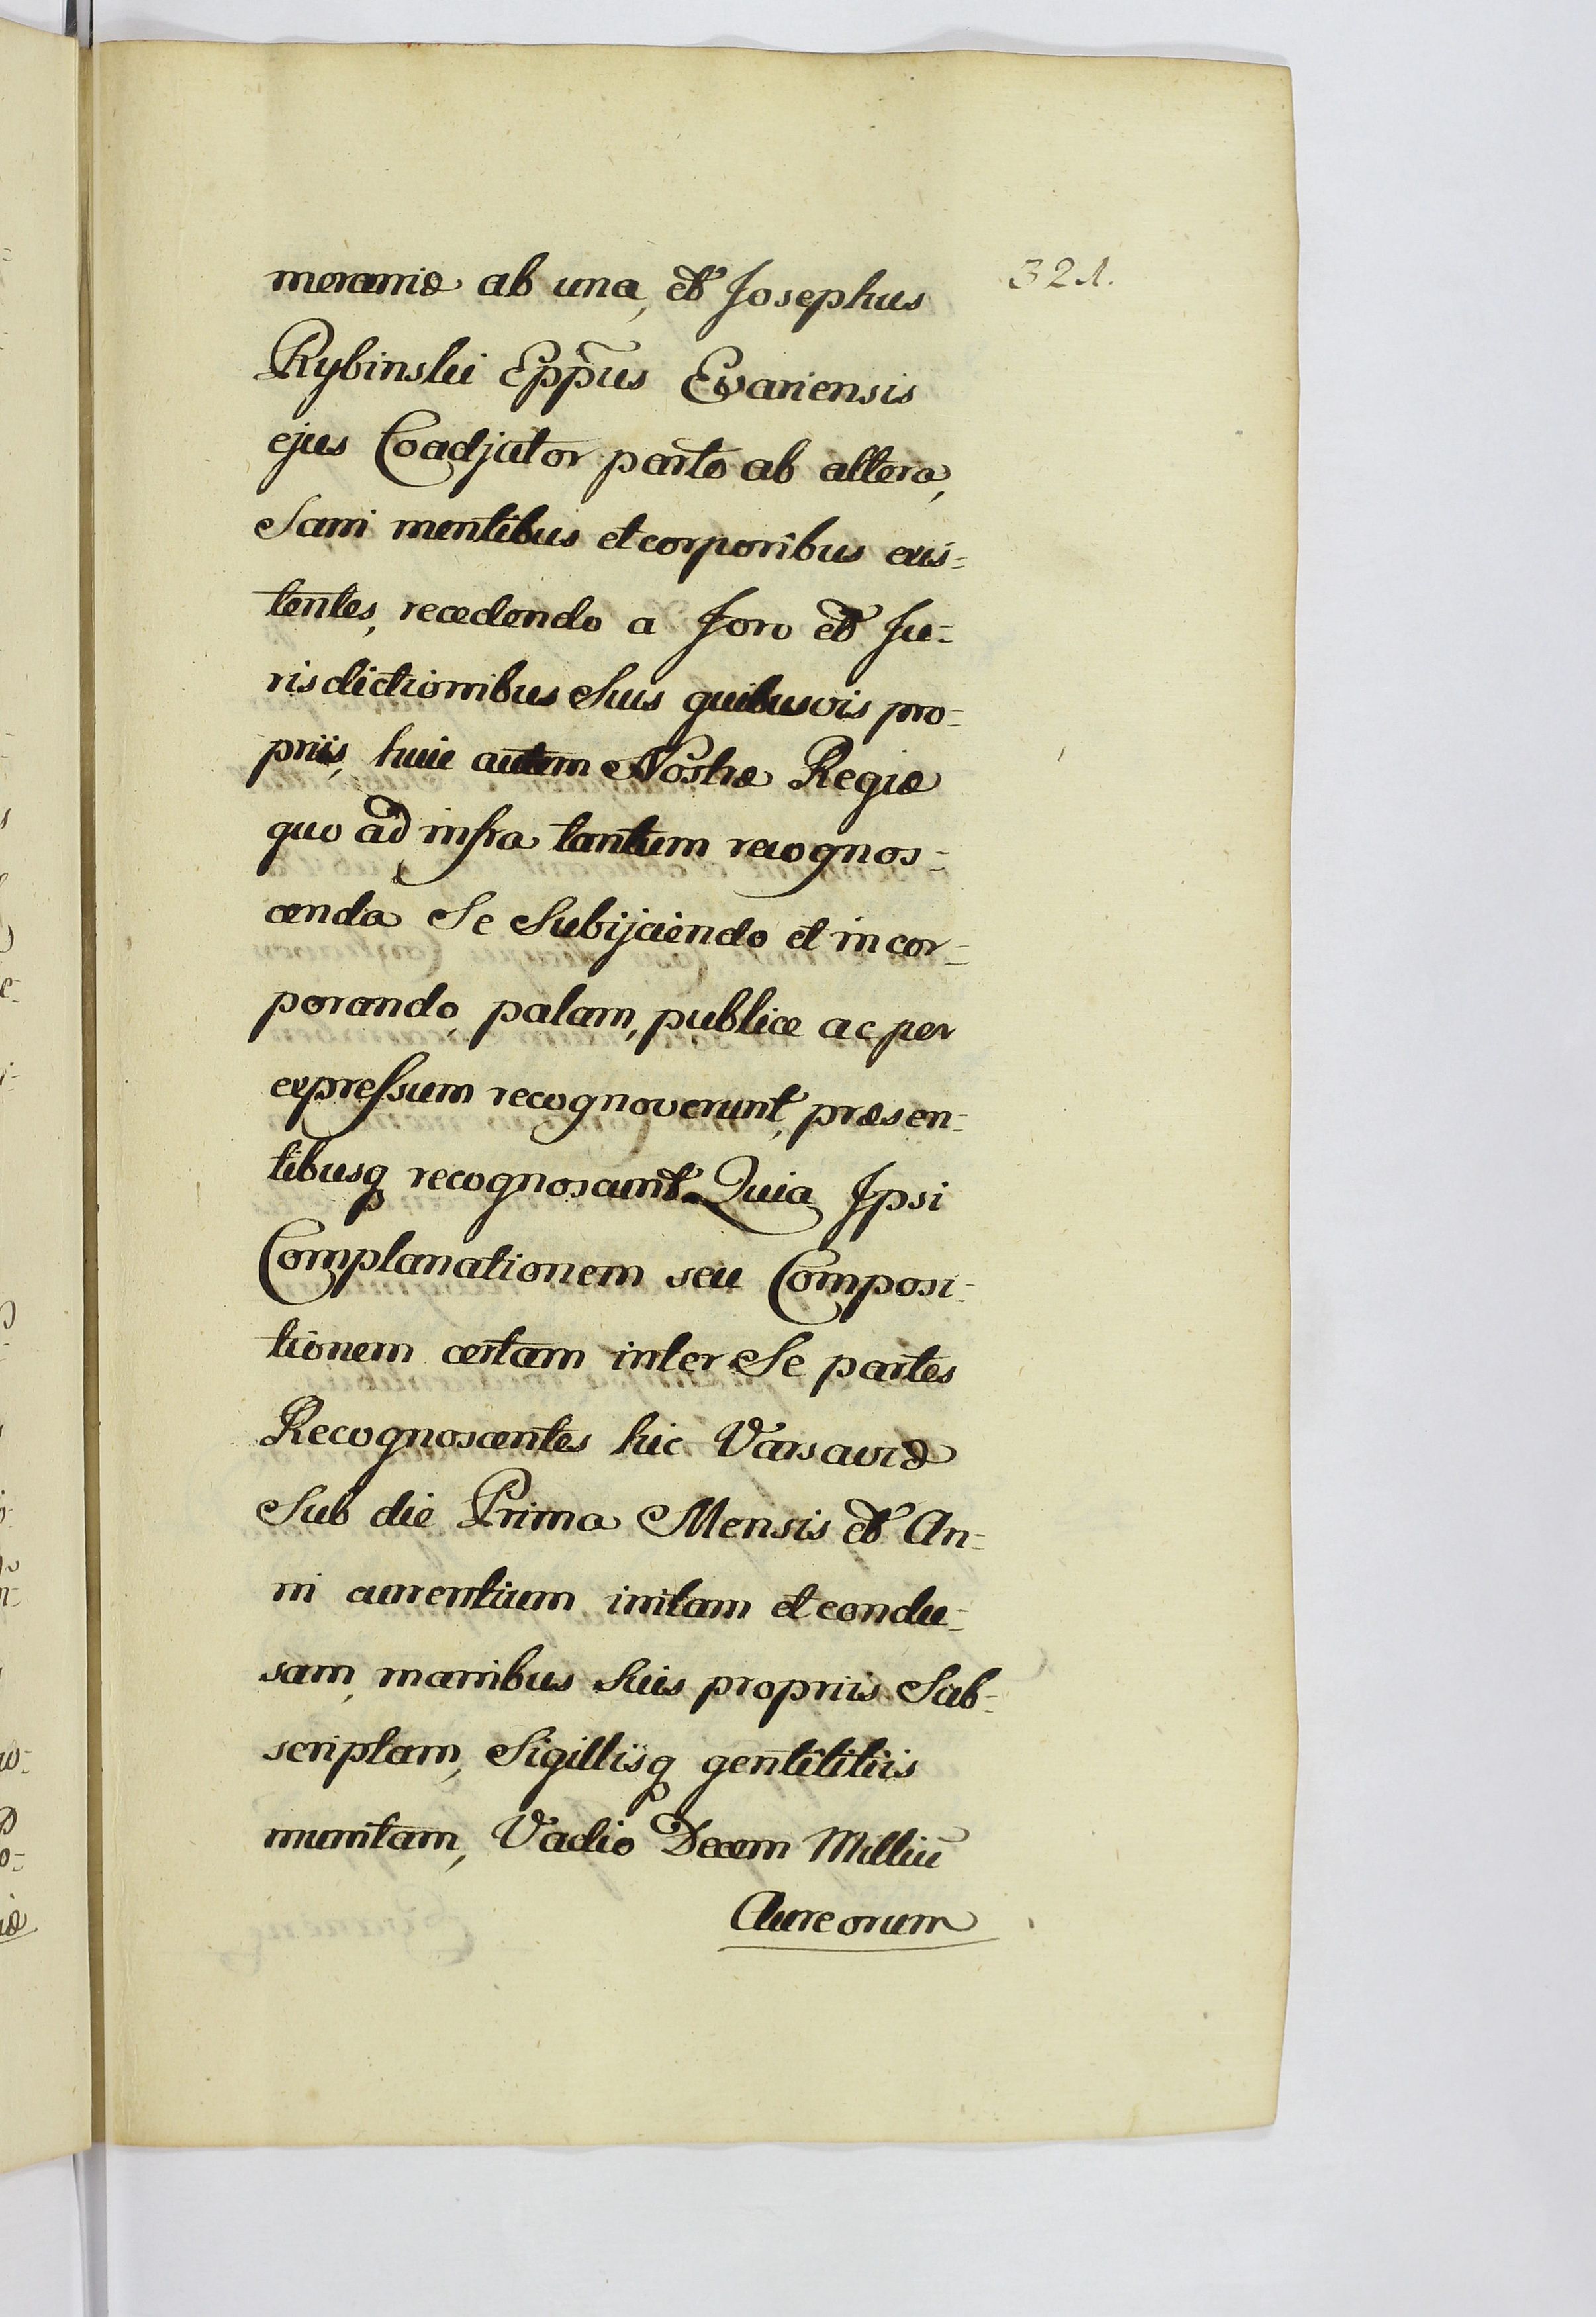 321.
meraniæ ab una, et Josephus
Rybinski Epp̃us Evariensis
ejus Coadjutor parte ab altera,
Sani mentibus et corporibus exis-
tentes, recedendo a Foro et Ju-
risdictionibus Suis quibusvis pro-
priis, huic autem Nostræ Regiæ
quo ad infra tantum recognos-
cenda Se Subijciendo et incor-
porando, palam, publice ac per
expressum recognoverunt, præsen-
tibusq recognoscunt. Quia Ipsi
Complanationem seu Composi-
tionem certam inter Se partes
Recognoscentes hic Varsaviæ
Sub die Prima Mensis et An-
ni currentium initam et conclu-
sam, manibus Suis propriis Sub-
scriptam, Sigillisq gentilitiis
munitam, Vadio Decem Milliũ
Aureorum